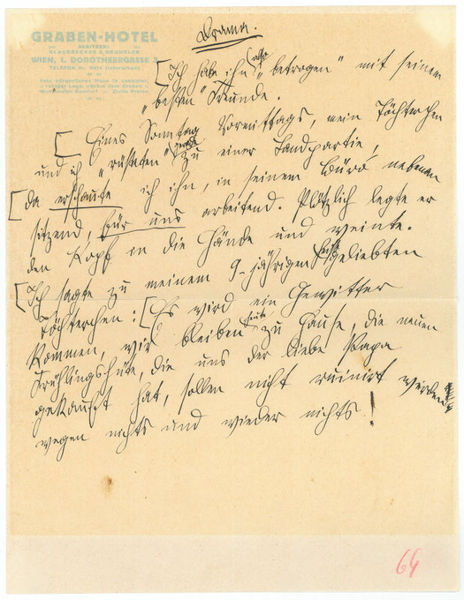 GRABEN-HOTEL
BESITZER:
WIEN, I. DOROTHEERGASSE 3
Drama.
[Ich habe ihn also „betrogen“ mit seinem
„besten“ Freunde.
[Eines Sonntag Vormittags, mein Töchterchen
und ich „rüsteten“ gerade zu einer Landpartie,
[da erschaute ich ihn, in seinem Büro nebenan
sitzend, für uns arbeitend. Plötzlich legte er
den Kopf in die Hände und weinte.
[Ich sagte zu meinem 9-jährigen geliebten
Töchterchen: [Es wird ein Gewitter
kommen, wir bleiben heute zu Hause, die neuen
Frühlingshüte, die uns der liebe Papa
gekauft hat, sollen nicht ruinirt werden
wegen nichts und wieder nichts!
69